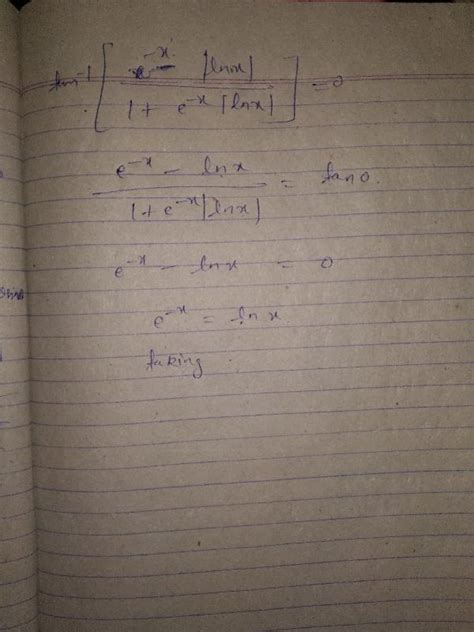 tan⁻¹ [ (e⁻ˣ − |lnx|) / (1 + e⁻ˣ |lnx|) ] = 0
(e⁻ˣ − lnx) / (1 + e⁻ˣ |lnx|) = tan 0.
e⁻ˣ − lnx = 0
e⁻ˣ = lnx.
taking